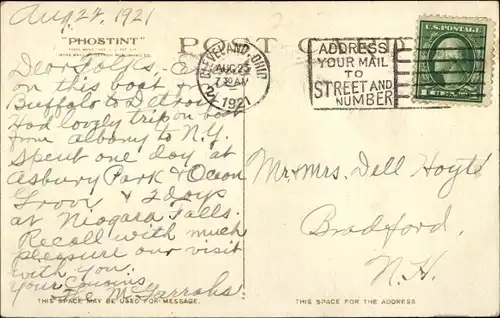 Aug 22, 1921
"PHOSTINT"
POST CARD
CLEVELAND, OHIO
AUG 23
7 30 AM
1921
ADDRESS
YOUR MAIL
TO
STREET AND
NUMBER
U.S. POSTAGE
Dear folks, are
on this boat from
Buffalo to Detroit
Had lovely trip on boat
from Albany to N.Y.
Spent one day at
Asbury Park & Ocean
Grove & 2 days
at Niagara Falls.
Recall with much
pleasure our visit
with you.
Your Cousins,
The McFarrohs
Mr & Mrs. Dell Hoyts
Bradford,
N.H.
THIS SPACE MAY BE USED FOR MESSAGE.
THIS SPACE FOR THE ADDRESS